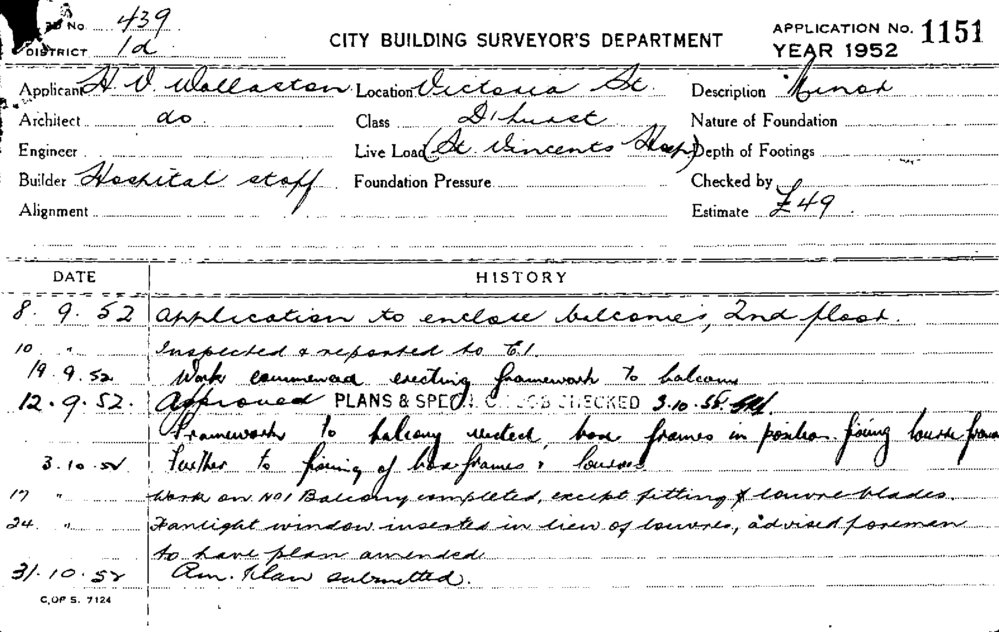 No. 439
DISTRICT 1d
CITY BUILDING SURVEYOR'S DEPARTMENT
APPLICATION No. 1151
YEAR 1952
Applicant H. V. Wollaston Location Victoria St. Description Minor
Architect do Class D'hurst Nature of Foundation
Engineer Live Load (St. Vincents Hosp) Depth of Footings
Builder Hospital staff Foundation Pressure Checked by
Alignment Estimate £49
DATE HISTORY
8. 9. 52 Application to enclose balconies, 2nd floor.
10 " Inspected & reported to C.I.
19.9.52 Work commenced erecting framework to balcony
12.9.52. Approved PLANS & SPECN. ON JOB CHECKED 3.10.52
Framework to balcony erected, box frames in position fixing louvre frames
3.10.52 Further to fixing of box frames & louvres
17 " Work on No1 Balcony completed, except fitting of louvre blades.
24. " Fanlight window inserted in lieu of louvres, advised foreman
to have plan amended
31.10.52 Am. Plan submitted.
C. OF S. 7124